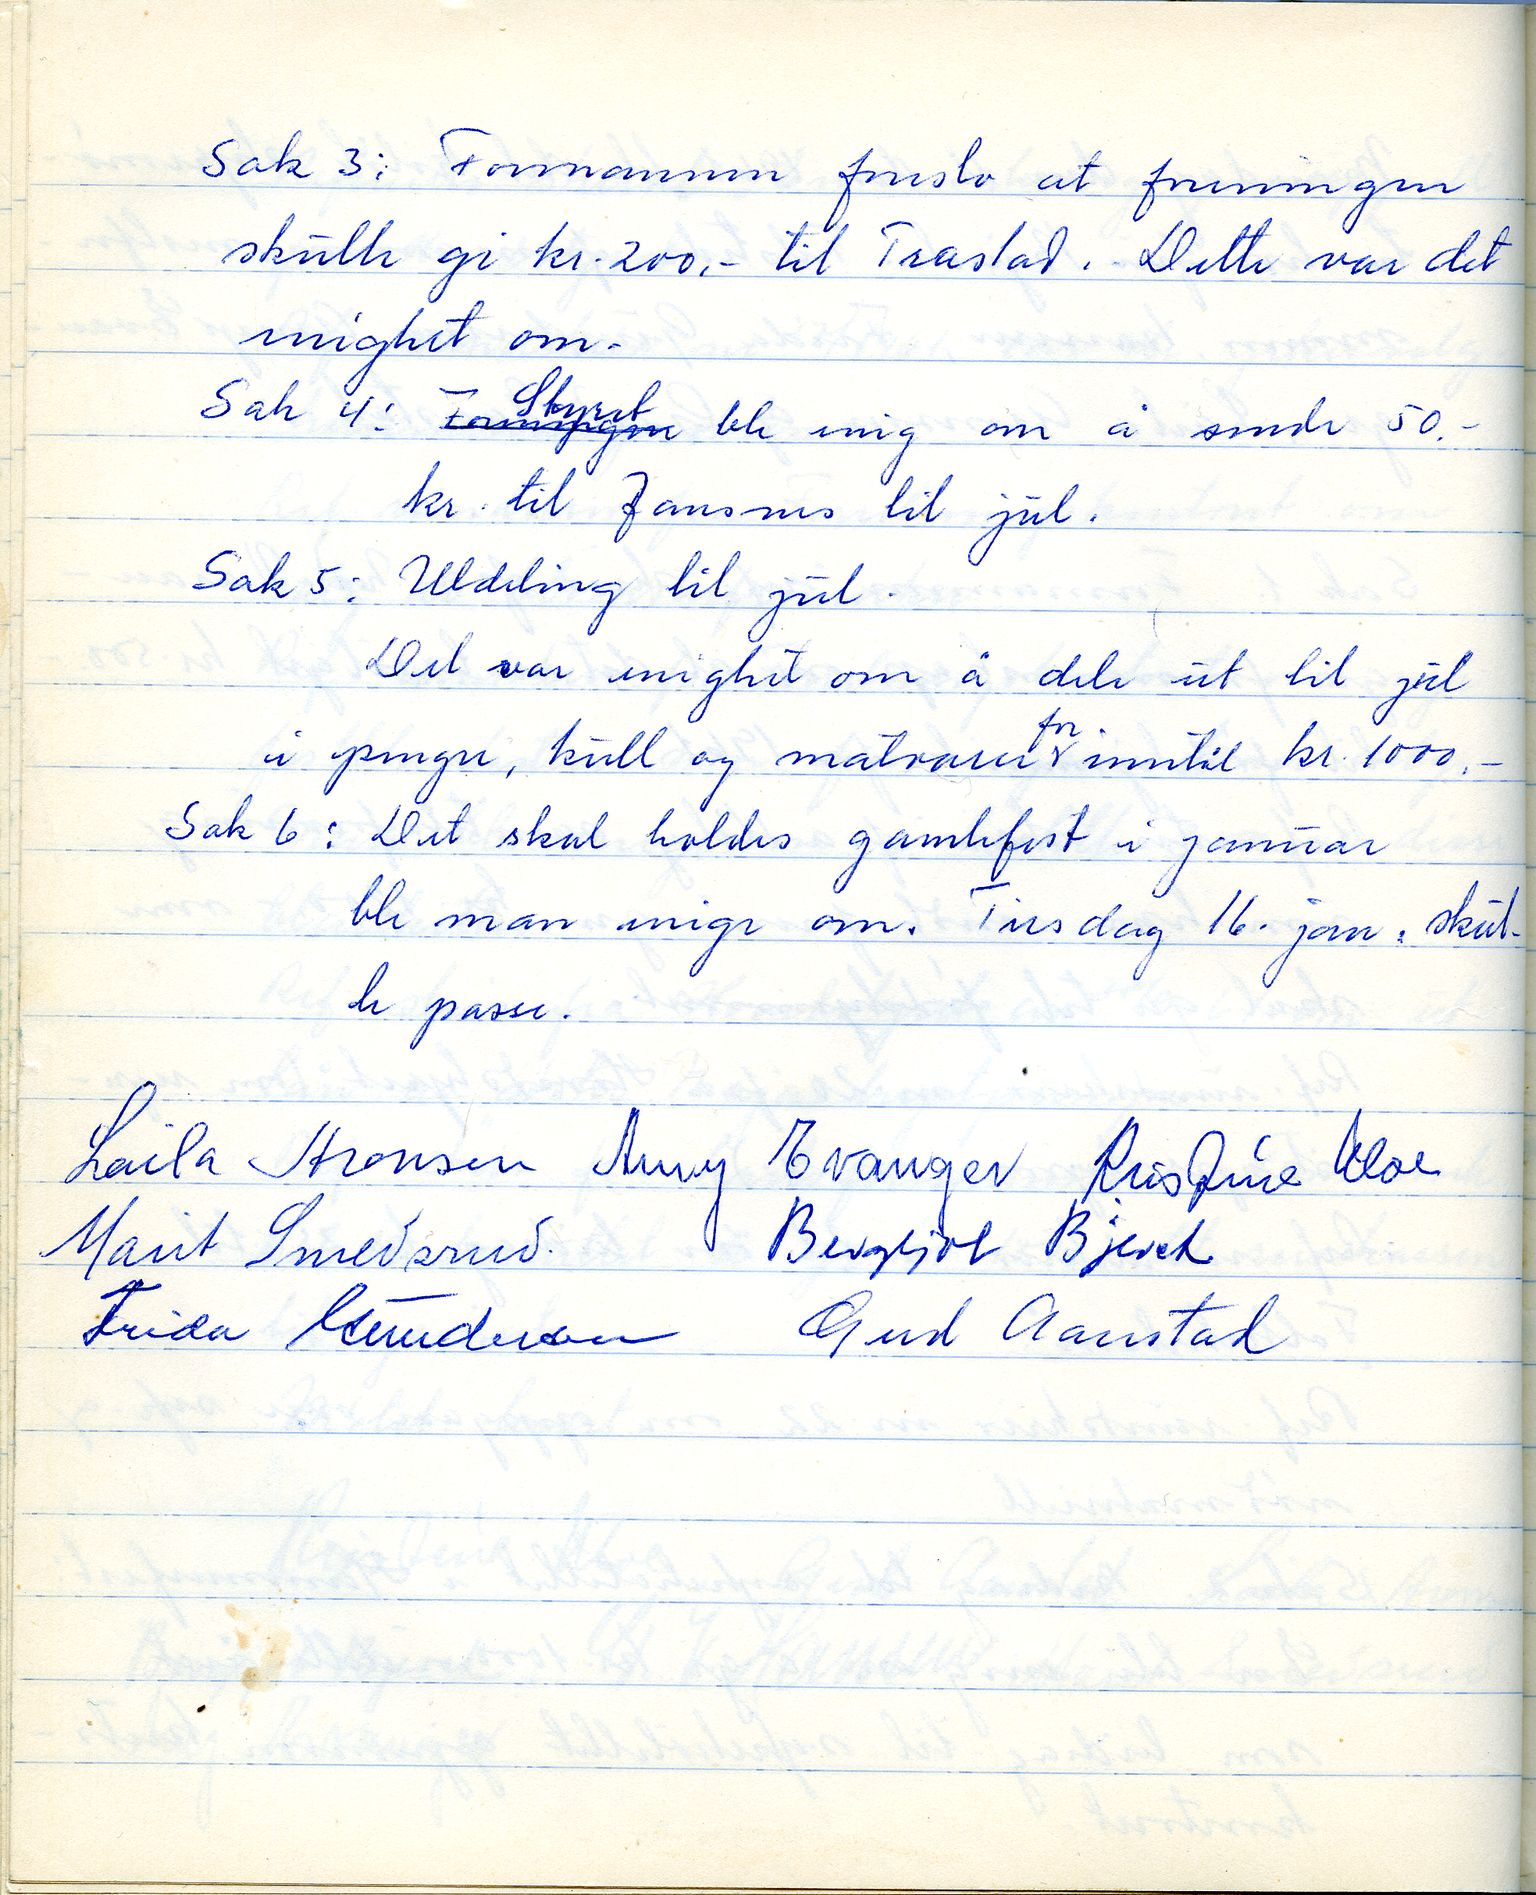 Sak 3: Formannen foreslo at foreningen
skulle gi kr. 200,- til Trastad. Dette var det
enighet om.
Sak 4: Foreningen Styret ble enig om å sende 50.-
kr. til Jansnes til jul.
Sak 5: Utdeling til jul.
Det var enighet om å dele ut til jul
i penger, kull og matvarer for inntil kr. 1000,-
Sak 6: Det skal holdes gamlefest i januar
ble man enige om. Tirsdag 16. jan. skul-
le passe.
Laila Aronsen Anny Evanger Kristine Moe
Marit Smedsrud. Bergljot Bjerck
Frida Gundersen Gerd Aanstad